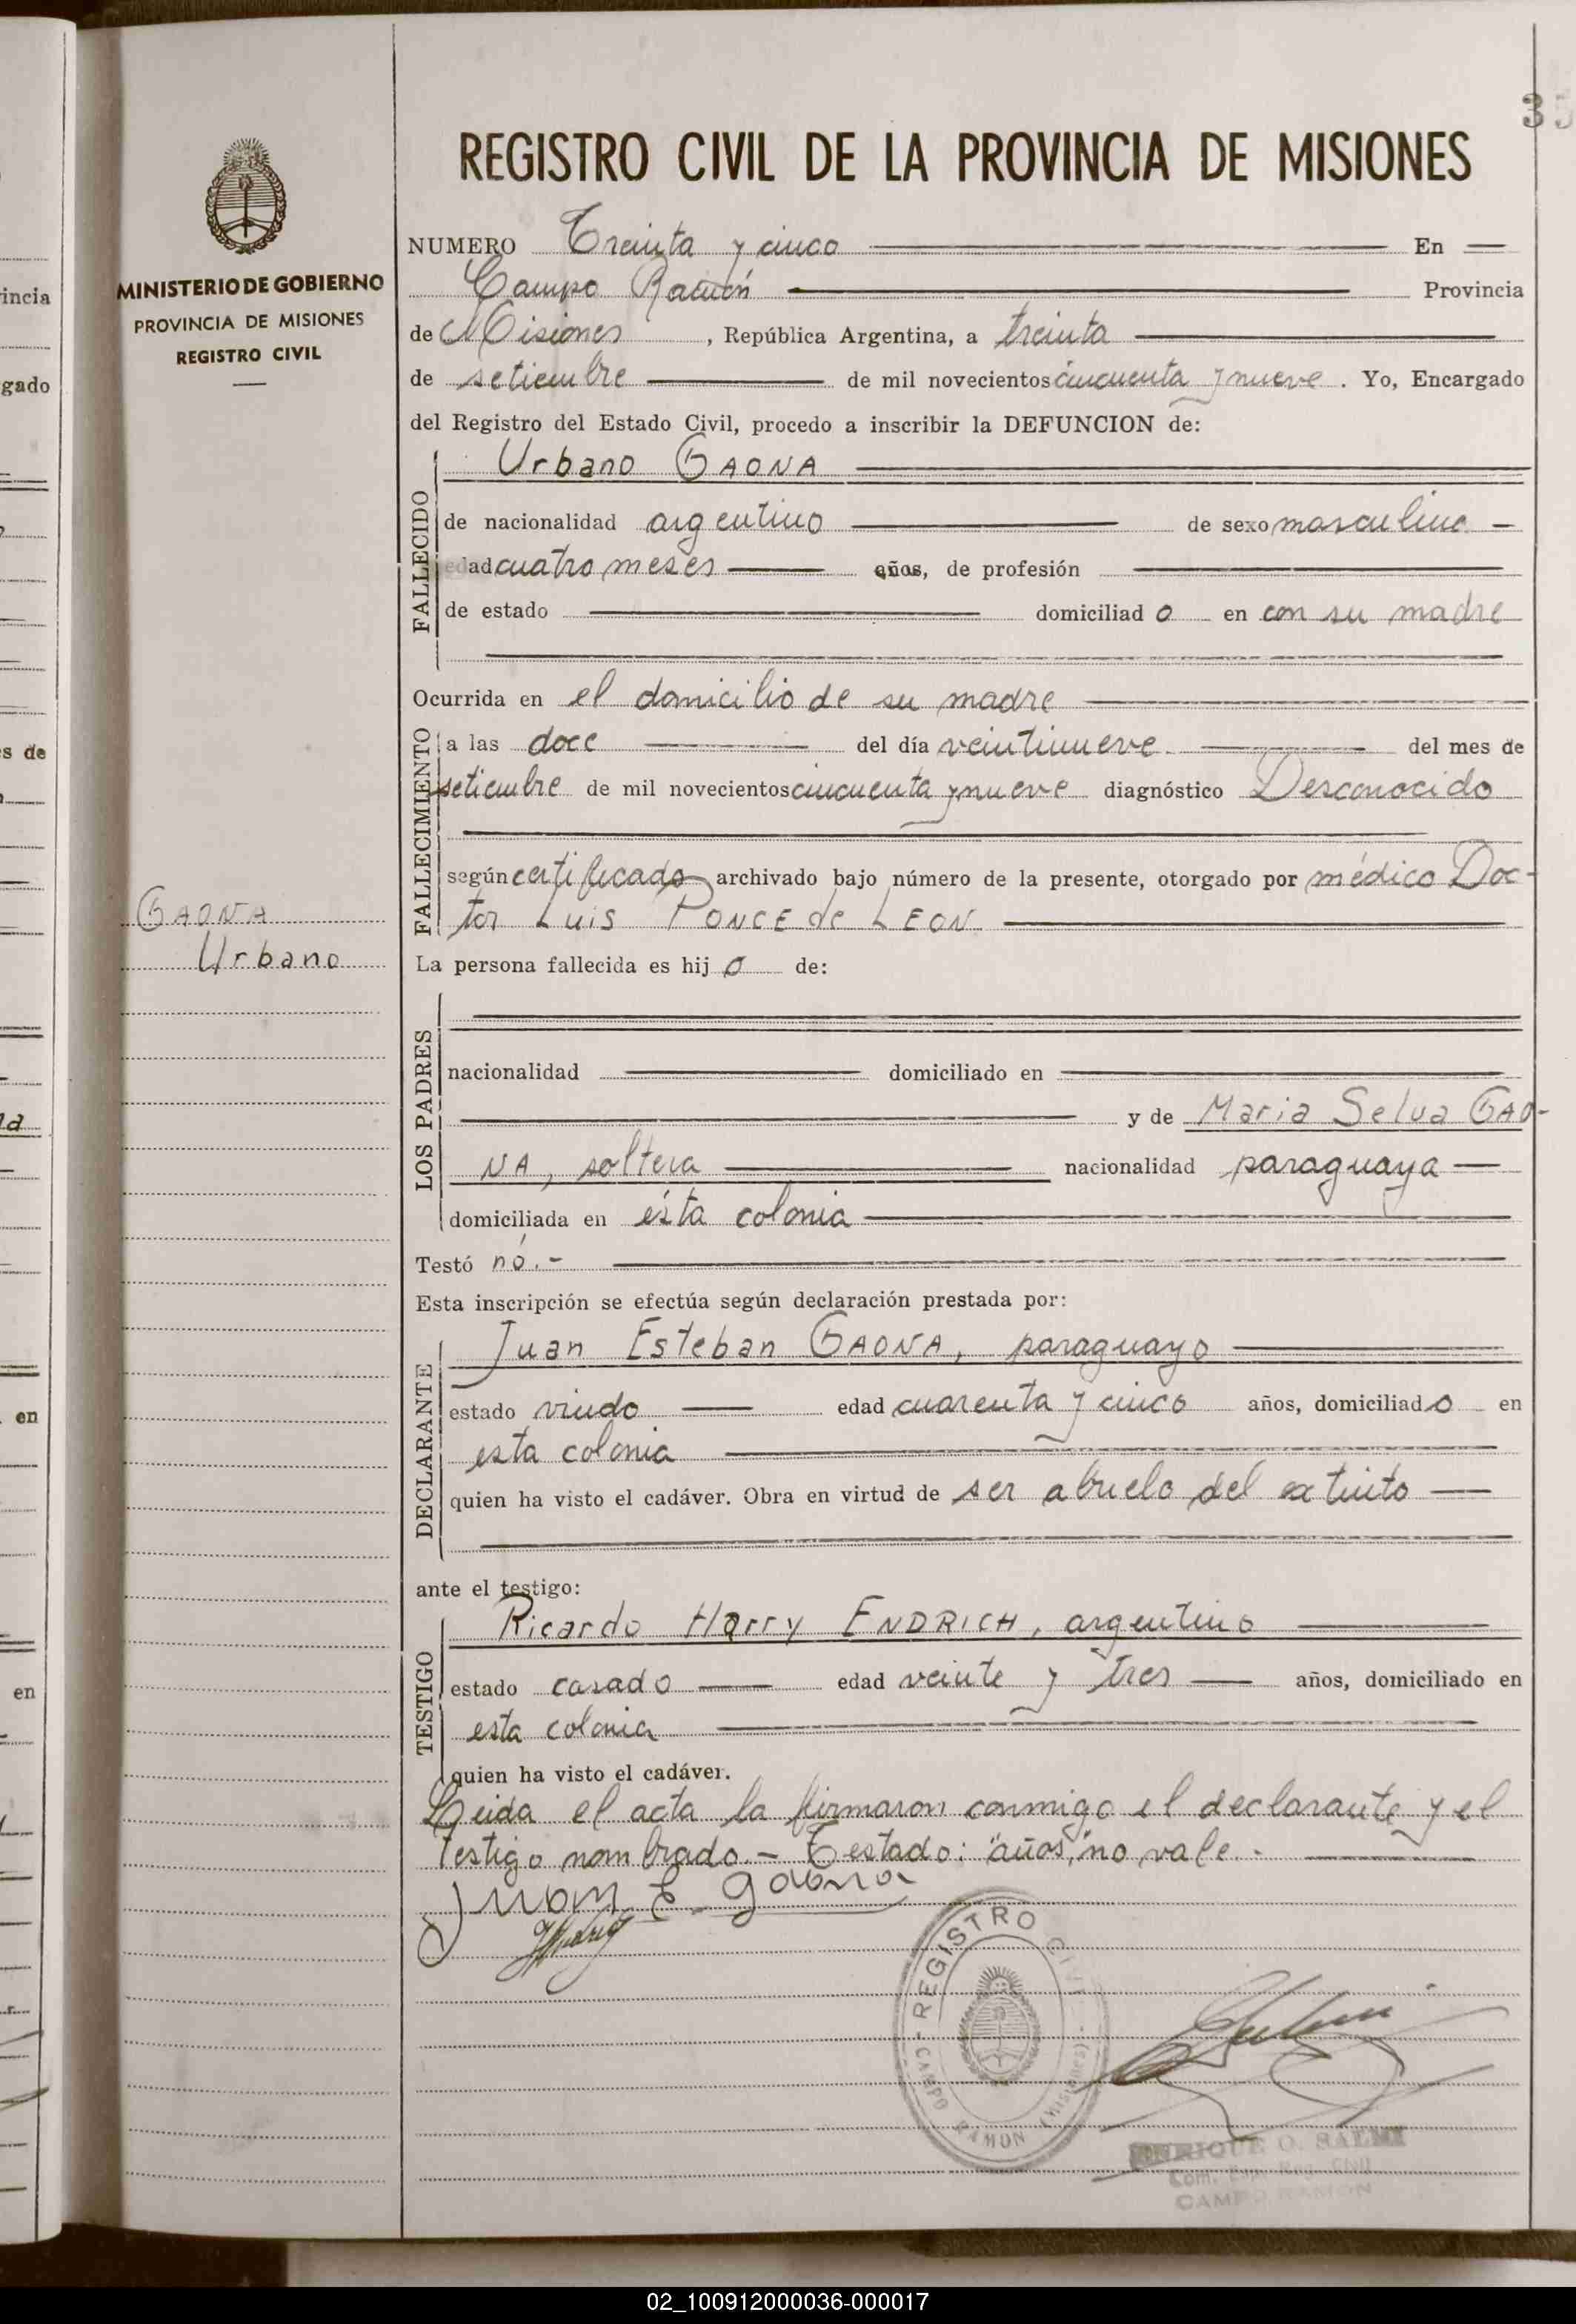 35
REGISTRO CIVIL DE LA PROVINCIA DE MISIONES
MINISTERIO DE GOBIERNO
PROVINCIA DE MISIONES
REGISTRO CIVIL
NUMERO Treinta y cinco En
Campo Ramón Provincia
de Misiones, República Argentina, a treinta
de setiembre de mil novecientos cincuenta y nueve. Yo, Encargado
del Registro del Estado Civil, procedo a inscribir la DEFUNCION de:
FALLECIDO
Urbano GAONA
de nacionalidad argentino de sexo masculino
edad cuatro meses años, de profesión
de estado domiciliad o en con su madre
Ocurrida en el domicilio de su madre
FALLECIMIENTO
a las doce del día veintinueve del mes de
setiembre de mil novecientos cincuenta y nueve diagnóstico Desconocido
según certificado archivado bajo número de la presente, otorgado por médico Doc-
tor Luis PONCE de LEON
GAONA
Urbano
La persona fallecida es hij o de:
LOS PADRES
nacionalidad domiciliado en
y de Maria Selva GAO-
NA, soltera nacionalidad paraguaya
domiciliada en ésta colonia
Testó nó.-
Esta inscripción se efectúa según declaración prestada por:
DECLARANTE
Juan Esteban GAONA, paraguayo
estado viudo edad cuarenta y cinco años, domiciliado en
esta colonia
quien ha visto el cadáver. Obra en virtud de ser abuelo del extinto
ante el testigo:
TESTIGO
Ricardo Harry ENDRICH, argentino
estado casado edad veinte y tres años, domiciliado en
esta colonia
quien ha visto el cadáver.
Leida el acta la firmaron conmigo el declarante y el
testigo nombrado.- Testado: "años," no vale.-
Juan E. gaona
REGISTRO CIVIL
CAMPO RAMON (Misiones)
ENRIQUE O.
CAMPO RAMON
incia
gado
s de
en
en
02_100912000036-000017